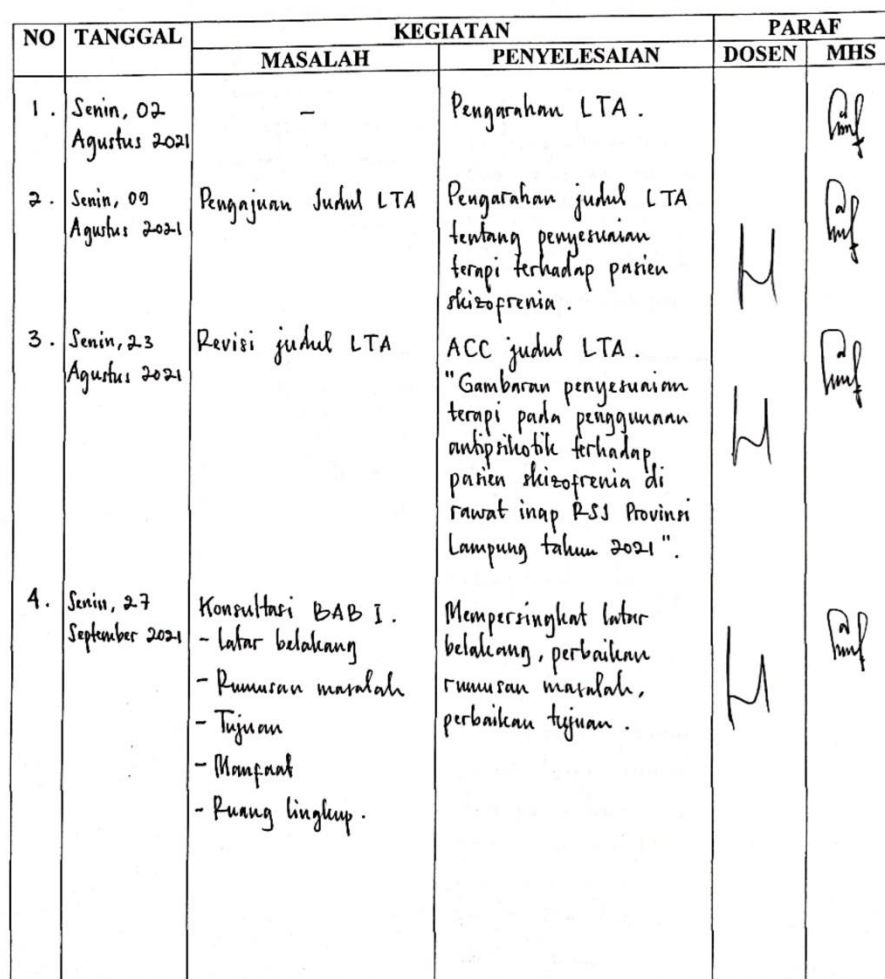 NO TANGGAL KEGIATAN PARAF
MASALAH PENYELESAIAN DOSEN MHS
1. Senin, 02
Agustus 2021
-
Pengarahan LTA.
2. Senin, 09
Agustus 2021
Pengajuan Judul LTA
Pengarahan judul LTA
tentang penyesuaian
terapi terhadap pasien
skizofrenia.
3. Senin, 23
Agustus 2021
Revisi judul LTA
ACC judul LTA.
"Gambaran penyesuaian
terapi pada penggunaan
antipsikotik terhadap
pasien skizofrenia di
rawat inap RSJ Provinsi
Lampung tahun 2021".
4. Senin, 27
September 2021
Konsultasi BAB I.
- latar belakang
- Rumusan masalah
- Tujuan
- Manfaat
- Ruang lingkup.
Mempersingkat latar
belakang, perbaikan
rumusan masalah,
perbaikan tujuan.